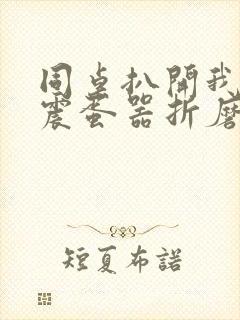 同桌扒開我
震蛋器折磨
短夏布諾